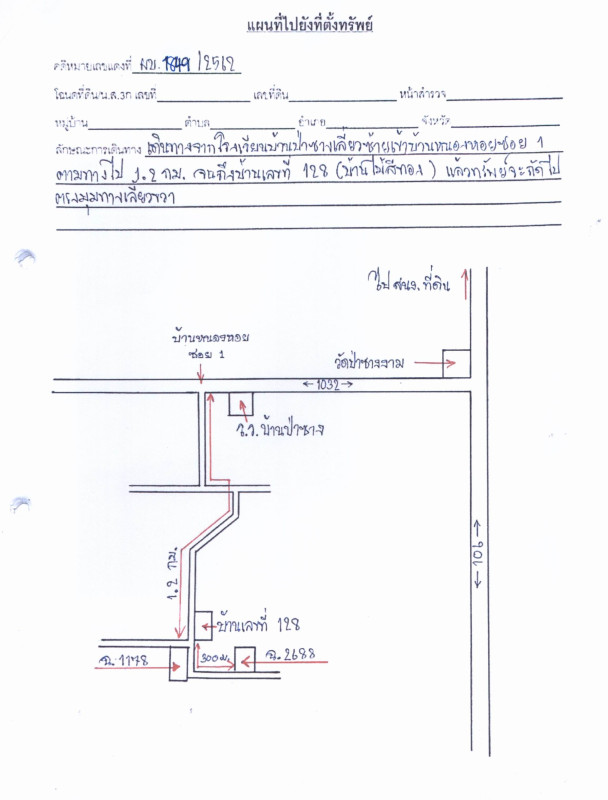 แผนที่ไปยังที่ตั้งทรัพย์
คดีหมายเลขแดงที่ ผบ.1849/2562
โฉนดที่ดิน/น.ส.3ก เลขที่ เลขที่ดิน หน้าสำรวจ
หมู่บ้าน ตำบล อำเภอ จังหวัด
ลักษณะการเดินทาง เดินทางจากโรงเรียนบ้านป่าซางเลี้ยวซ้ายเข้าบ้านหนองหอยซอย 1
ตามทางไป 1.2 กม. จนถึงบ้านเลขที่ 128 (บ้านไม้สีทอง) แล้วทรัพย์จะถัดไป
ตรงมุมทางเลี้ยวขวา
ไป สนง. ที่ดิน
บ้านหนองหอย
ซอย 1
วัดป่าซางงาม
1032
ร.ร. บ้านป่าซาง
106
1.2 กม.
บ้านเลขที่ 128
ฉ. 1178
300 ม.
ฉ. 2688